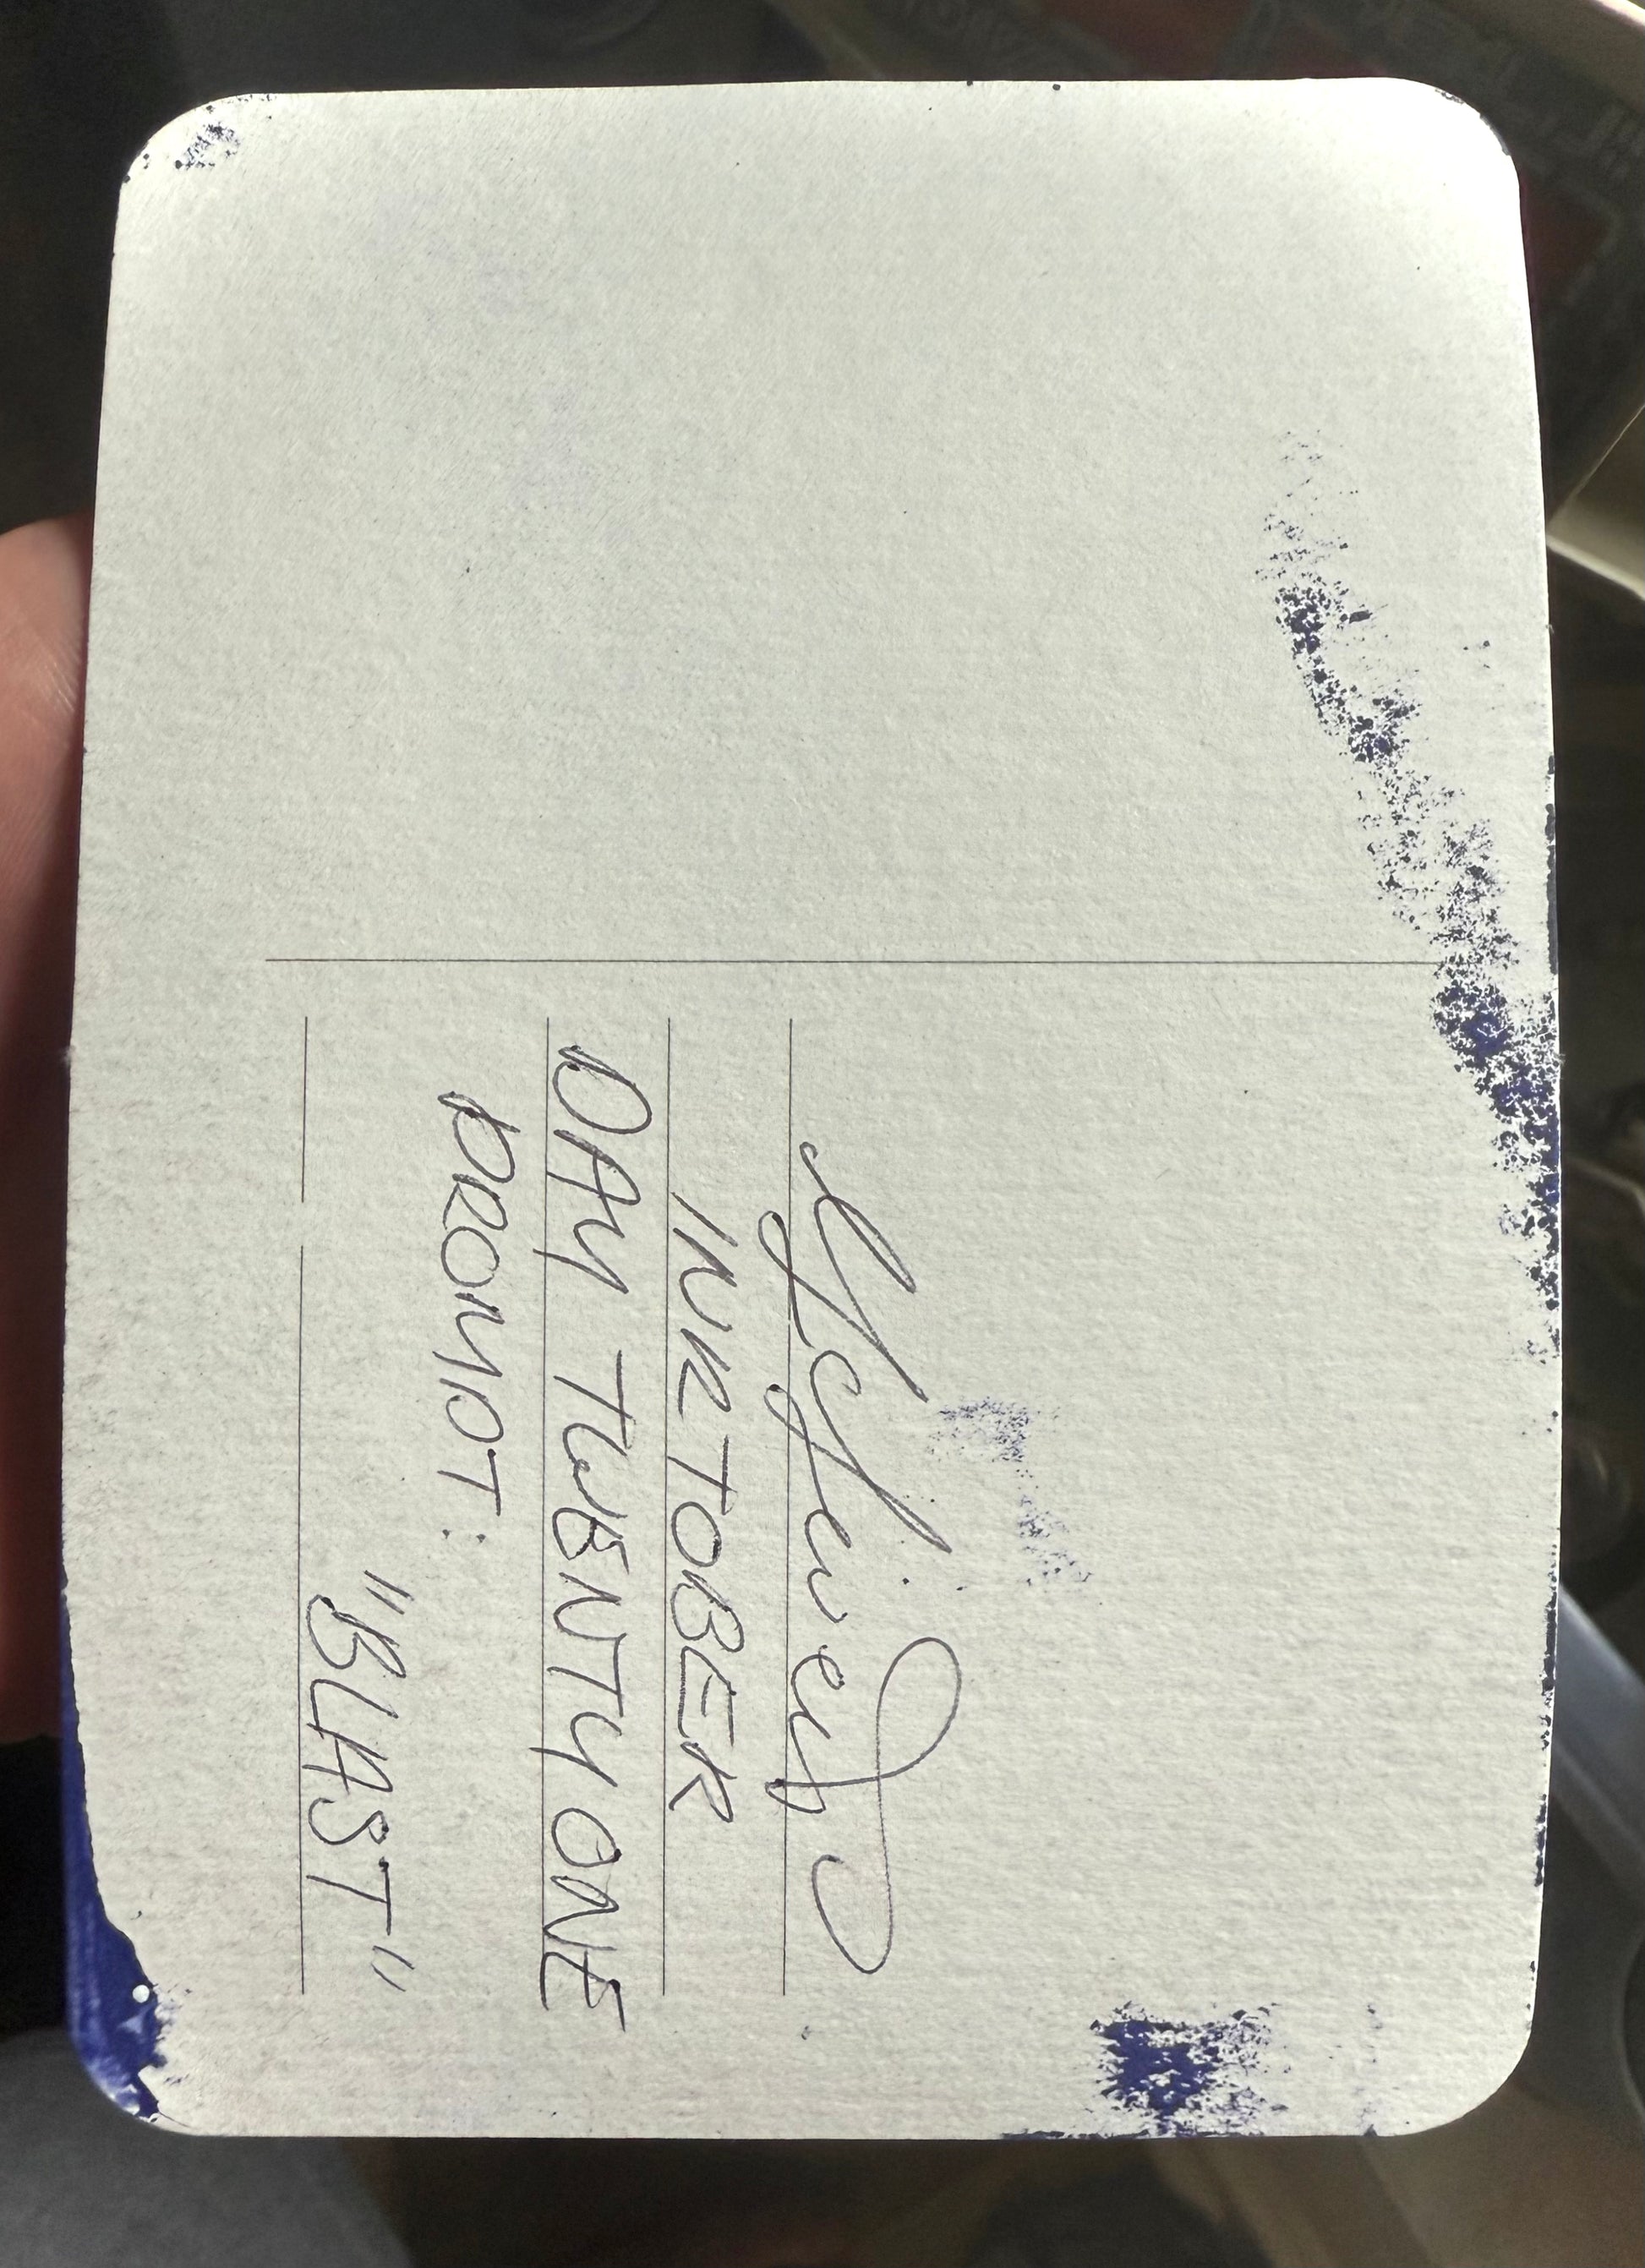 INKTOBER
DAY TWENTY ONE
PROMPT:
"BLAST"